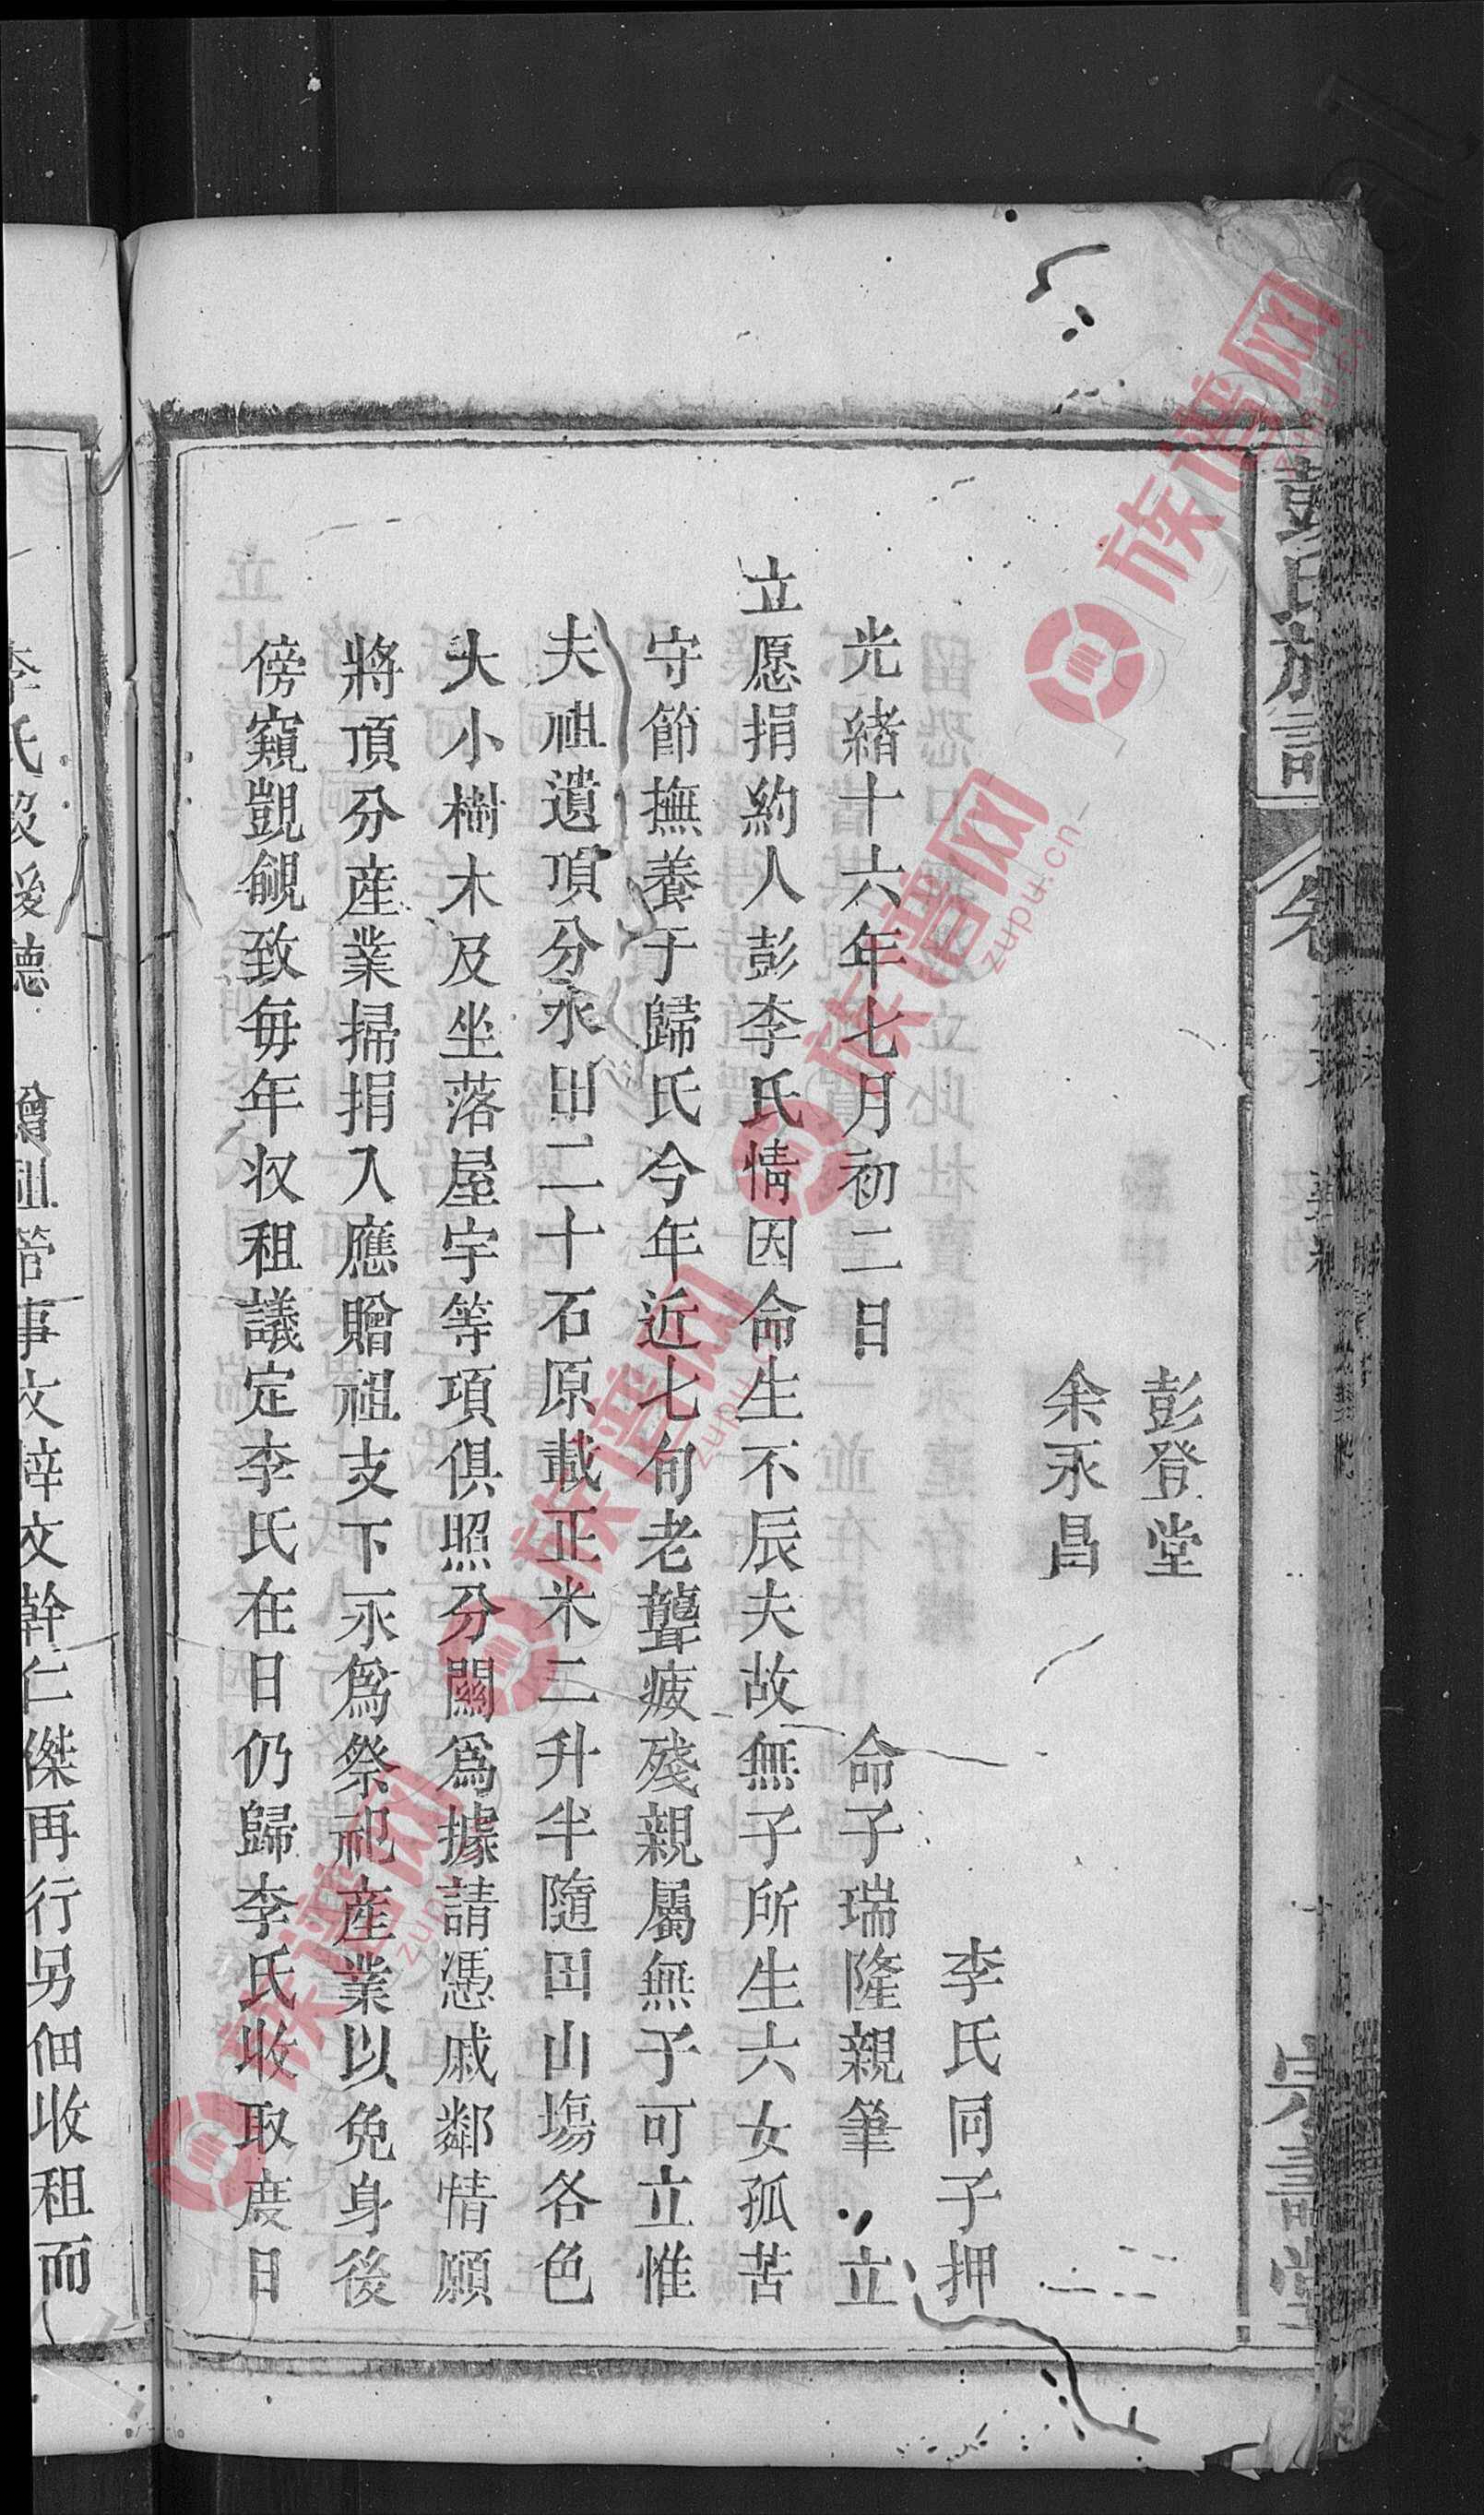 彭氏族譜
卷
彭登堂
余永昌
李氏同子押
光緒十六年七月初二日 命子瑞隆親筆 立
立愿捐約人彭李氏情因命生不辰夫故無子所生六女孤苦
守節撫養于歸氏今年近七旬老聾疲殘親屬無予可立惟
夫祖遺頂分水田二十石原載正米二升半隨田山塲各色
大小樹木及坐落屋宇等項俱照分關爲據請憑戚鄰情願
將頂分産業掃捐入應贈祖支下永爲祭祀産業以免身後
傍窺覬覦致每年收租議定李氏在日仍歸李氏收取度日
李氏歿後聽 贈祖管事文梓文幹仁傑再行另佃收租而
族谱网
zupu.cn
族谱网
zupu.cn
族谱网
zupu.cn
族谱网
zupu.cn